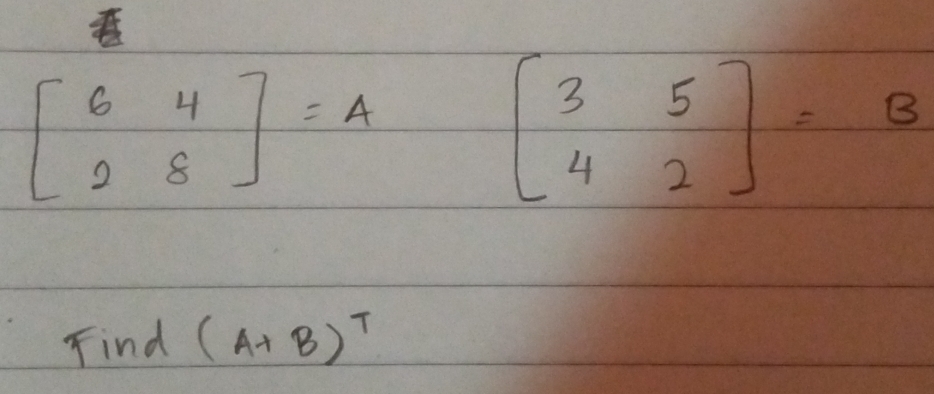 [6 4
2 8] = A [3 5
4 2] = B
Find (A+B)ᵀ